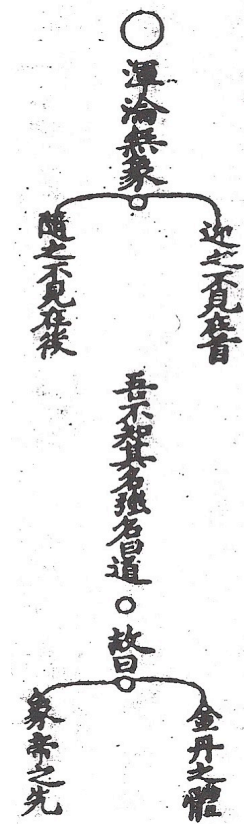 渾淪無象
迎之不見在首
隨之不見在後
吾不知其名強名曰道
故曰
金丹之體
象帝之先